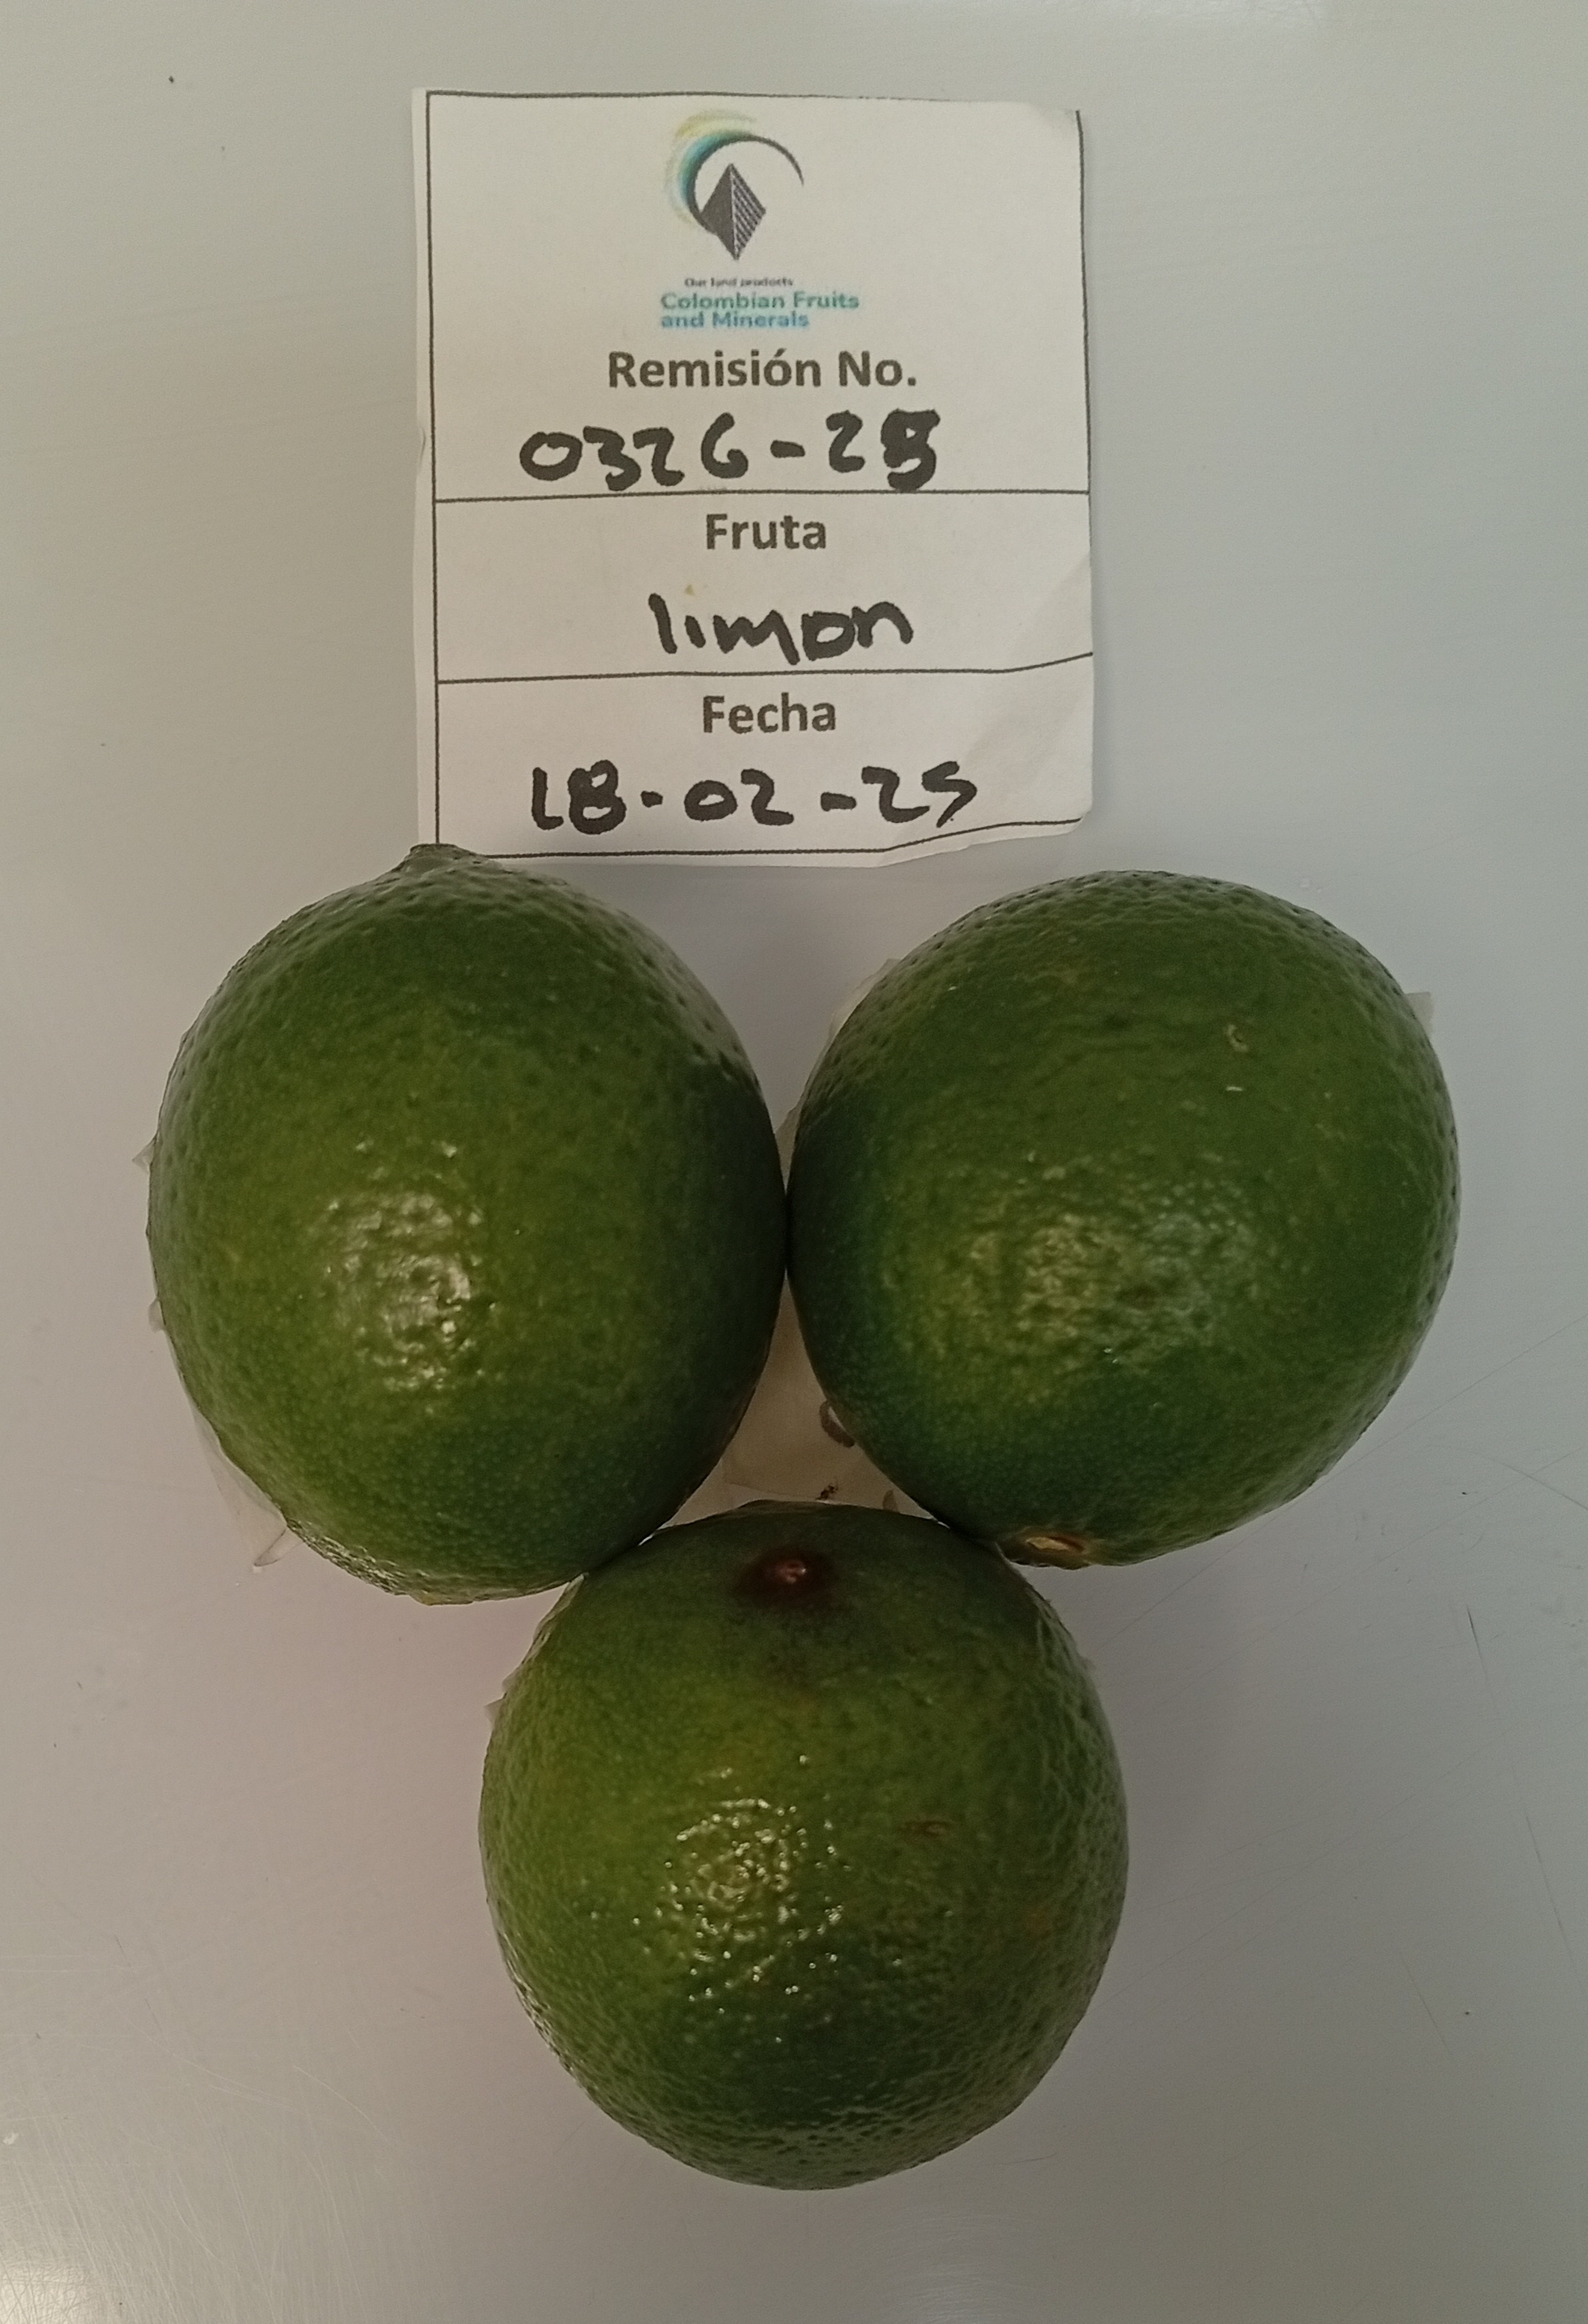 Our land products
Colombian Fruits
and Minerals
Remisión No.
0326-25
Fruta
limon
Fecha
18-02-25